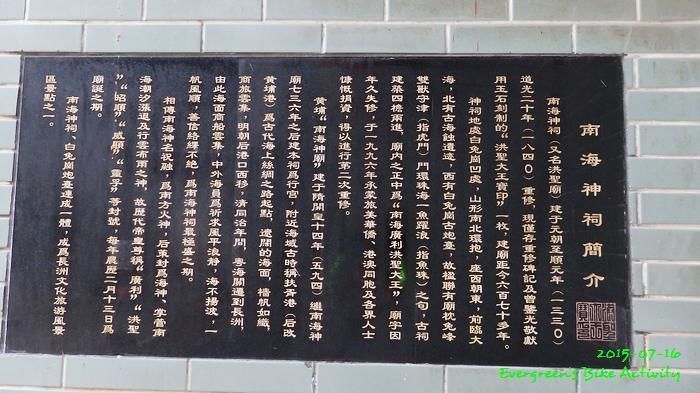 南海神祠簡介
南海神祠（又名洪聖廟）建于元朝至順元年（一三三０）
道光二十年（一八四０）重修，現僅存重修碑記及曾鑒光敬獻
用玉石刻制的“洪聖大王寶印”一枚，建廟距今六百七十多年。
神祠地處白兔崗凹處，山形南北環抱，座西朝東，前臨大
海，北有古海蝕遺迹，西有白兔崗古炮臺，故楹聯有廟枕兔峰
雙獸守津（指虎門）門環珠海一魚躍浪（指魚珠）之句，古祠
建築四檐兩進，廟内之正中爲“南海廣利洪聖大王”，廟宇因
年久失修，于一九九六年承蒙旅美華僑、港澳同胞及各界人士
慷慨捐資，得以進行第二次重修。
黄埔“南海神廟”建于隋開皇十四年（五九四）繼南海神
廟七三六年之后建本祠爲行宫，附近海域古時稱扶胥港（后改
黄埔港），爲古代海上絲綢之路起點，遼闊的海面，檣帆如織，
商旅雲集，明朝后港口西移，清同治年間，粤海關遷到長洲，
由此海面商船雲集，中外海員爲祈求風平浪静，海不揚波，一
帆風順，善信絡繹不絶，爲南海神祠最極盛之期。
相傳南海神名祝融，爲南方火神，后策封爲海神、掌管南
海潮汐漲退及行雲布雨之神，故歷代帝皇尊稱“廣利”“洪聖
”“昭順”“威顯”“靈孚”等封號，每年農歷二月十三日爲
廟誕之期。
南海神祠、白兔崗炮臺連成一體，成爲長洲文化旅游風景
區景點之一。
2015-07-16
Evergreen's Bike Activity